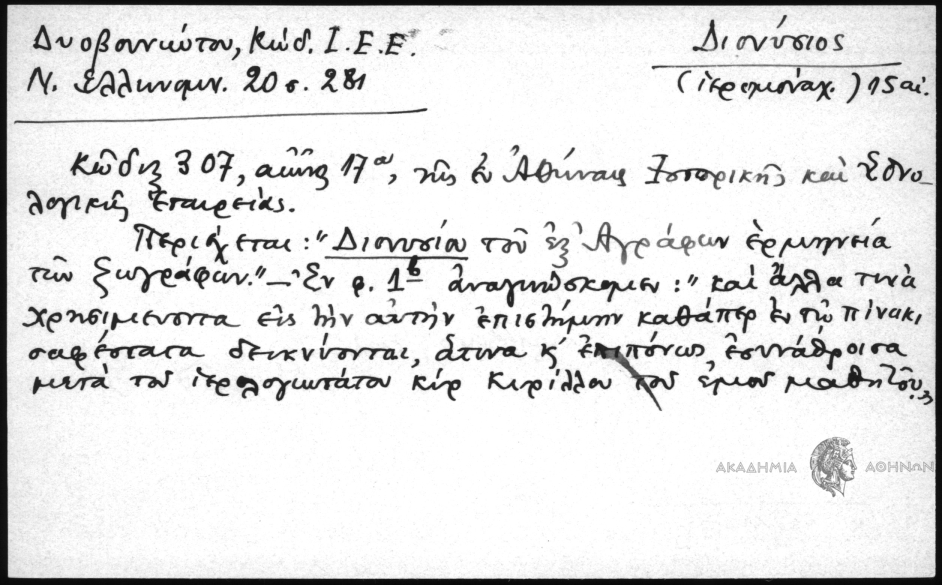 Δυοβουνιώτου, Κώδ. Ι.Ε.Ε.
Ν. Ἑλληνομν. 20 σ. 281
Διονύσιος
(ἱερομόναχ.) 15 αἰ.
Κῶδιξ 307, αἰῶνος 17ου, τῆς ἐν Ἀθήναις Ἱστορικῆς καὶ Ἐθνο-
λογικῆς Ἑταιρείας.
Περιέχεται: "Διονυσίου τοῦ ἐξ Ἀγράφων ἑρμηνεία
τῶν ζωγράφων." — Ἐν φ. 1β ἀναγινώσκομεν: "καὶ ἄλλα τινὰ
χρησιμεύοντα εἰς τὴν αὐτὴν ἐπιστήμην καθάπερ ἐν τῷ πίνακι
σαφέστατα δεικνύονται, ἅτινα κ' ἐπιπόνως ἐσυνάθροισα
μετὰ τοῦ ἱερολογιωτάτου κὺρ Κυρίλλου τοῦ ἐμοῦ μαθητοῦ."
ΑΚΑΔΗΜΙΑ ΑΘΗΝΩΝ